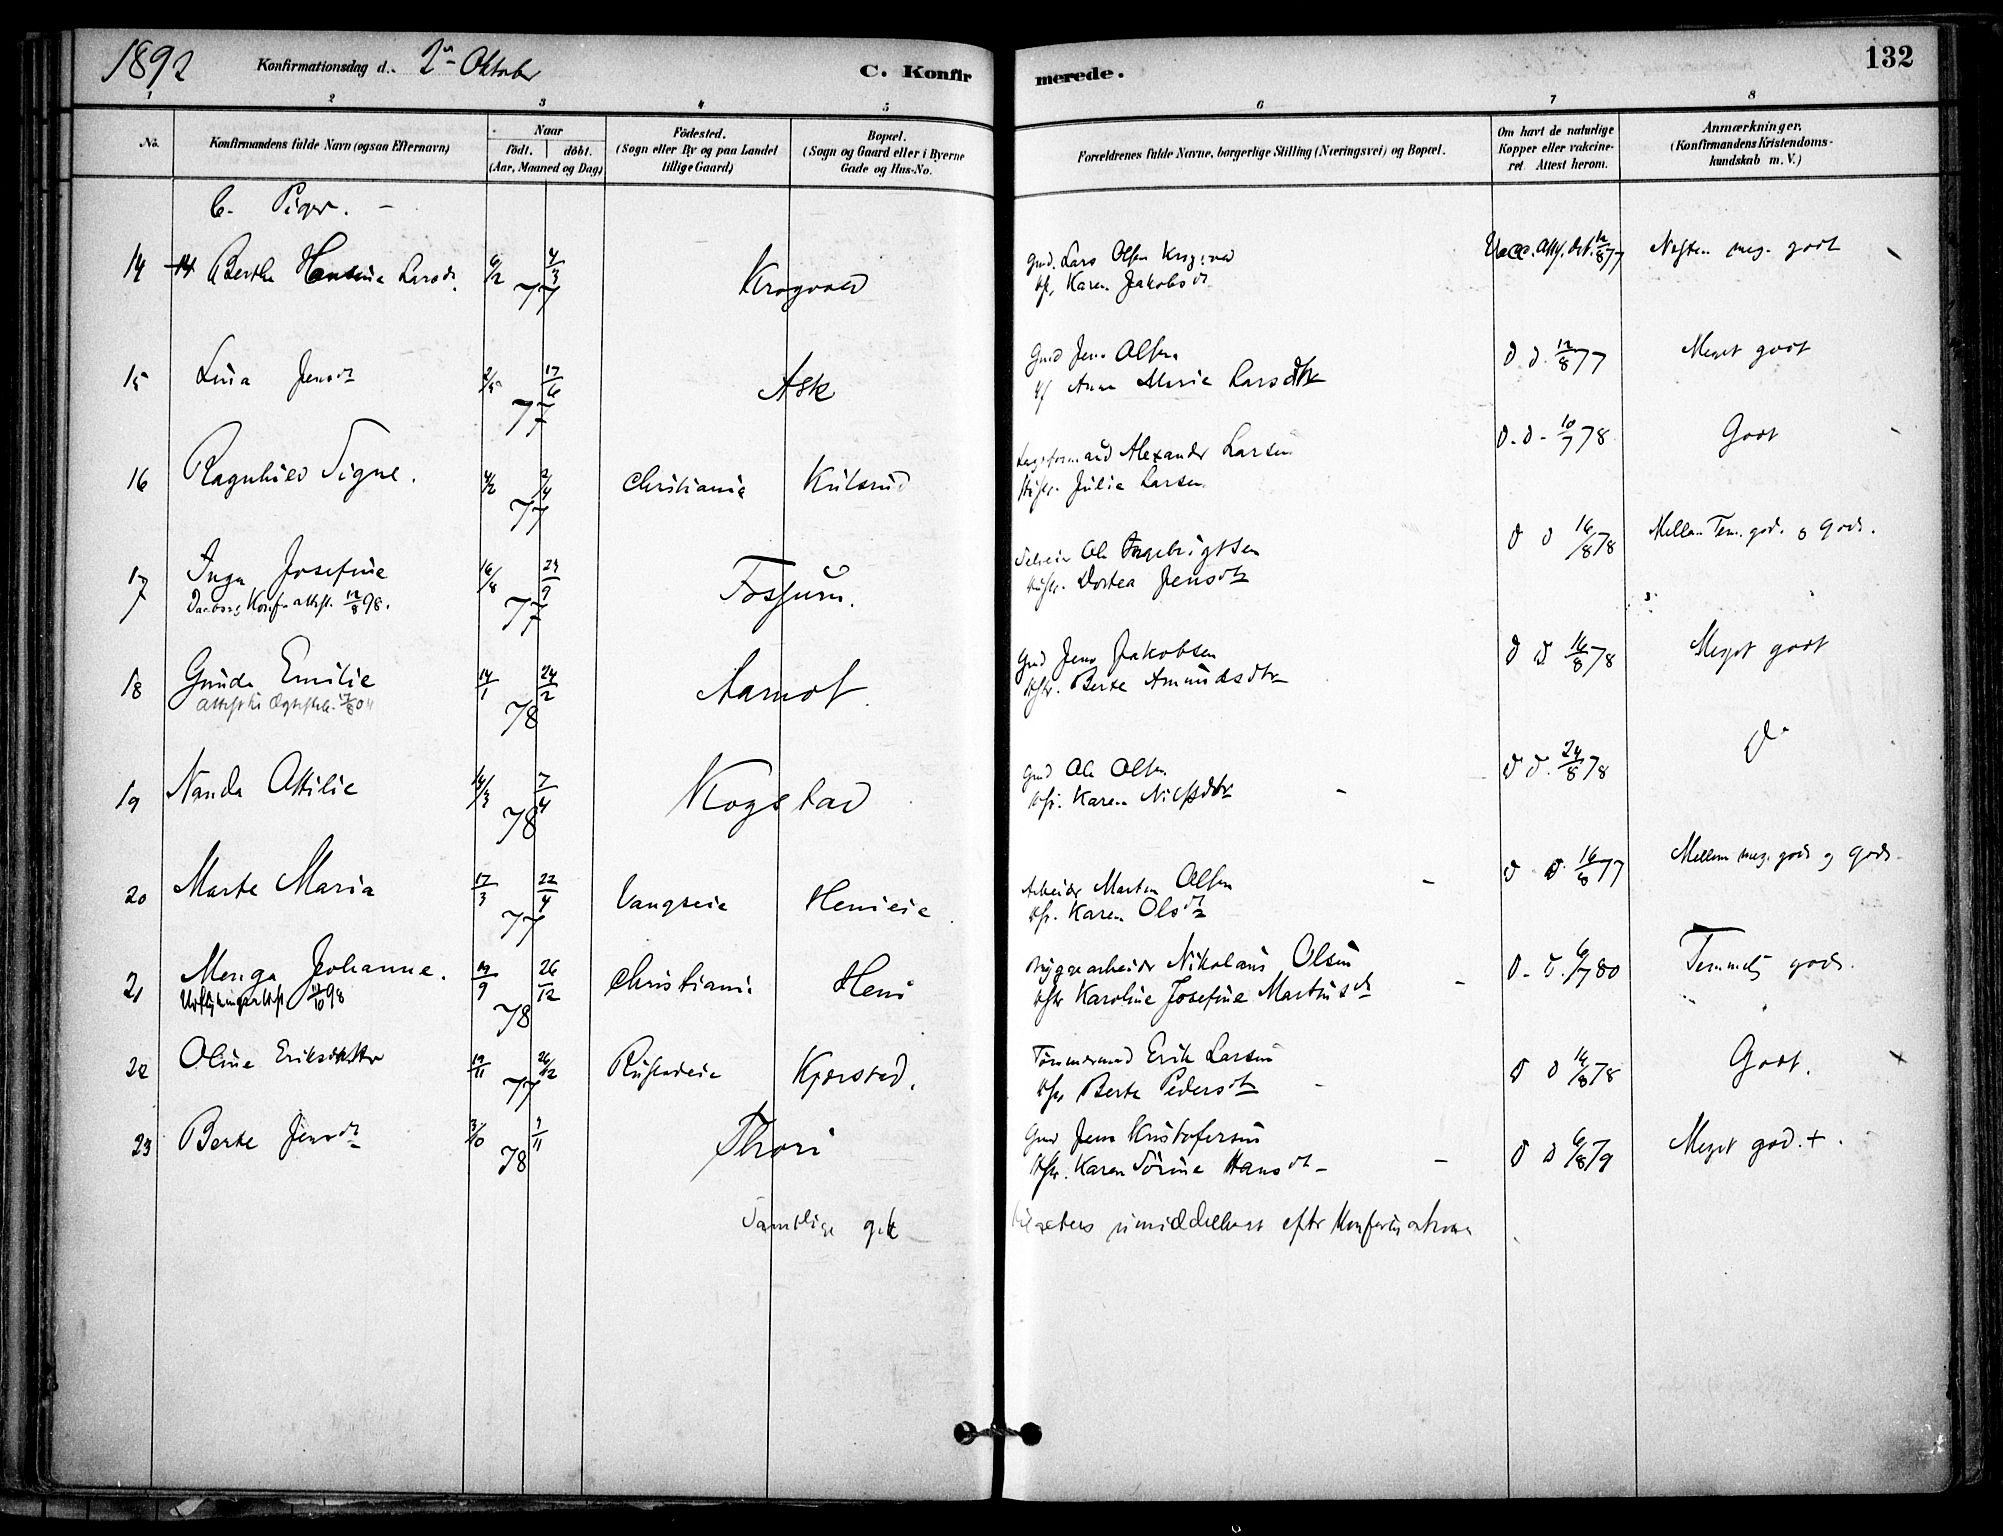 1892 Konfirmationsdag d. 2n Oktober C. Konfirmerede. 132
1 2 3 4 5 6 7 8
No.
Konfirmandens fulde Navn (ogsaa Efternavn)
Naar
födt. döbt.
(Aar, Maaned og Dag)
Födested.
(Sogn eller By og paa Landet
tillige Gaard)
Bopæl.
(Sogn og Gaard eller i Byerne
Gade og Hus-No.
Forældrenes fulde Navne, borgerlige Stilling (Næringsvei) og Bopæl.
Om havt de naturlige
Kopper eller vakcine-
ret Attest herom.
Anmærkninger.
(Konfirmandens Kristendoms-
kundskab m. V.)
Piger. -
14 14 Berthe Hansine Larsdr. 6/2 4/3 77 Krogvad Gmd. Lars Olsen Krogvad Vacc. Att. dat. 12/8 77 Næsten meg. godt
Karen Jakobsdr
15 Lina Jensdr 2/5 17/6 77 Ask Gmd Jens Olsen D D. 12/8 77 Meget godt
Anne Marie Larsdtr
16 Ragnhild Signe. 4/2 2/4 77 Christiania Kilsrud Alexander Larsen D. D - 10/7 78 Godt
Hustr. Julie Larsen
17 Inga Josefine 16/8 23/9 77 Fossum. Ole Ingebrigtsen D D 16/8 78 Mellem Tem. god. o Godt.
Konf. attest. 12/8 98. Hustr. Dortea Jensdtr
18 Gunda Emilie 14/1 24/2 78 Aamot. Gmd Jens Jakobsen D D 16/8 78 Meget godt
Berte Amundsdtr
19 Nanda Attilie 14/3 7/4 78 Kogstad Gmd Ole Olsen D D. 24/8 78 Do
Karen Nilsdtr -
20 Marte Maria 17/3 22/4 77 Vangseie Henieie Arbeider Martin Olsen - D D. 16/8 77 Mellem meg. godt og godt.
Karen Olsdtr
21 Menga Johanne. 19/9 26/12 78 Christiania Heni Bryggearbeider Nikolaus Olsen D. D. 6/7 80 Temmelig godt.
Udflytningsattest 12/10 98 Karoline Josefine Martinsdr -
22 Oline Eriksdatter 19/11 26/12 77 Kjorstad. Tömmermand Erik Larsen D D 16/8 78 Godt. x
Berte Pedersdtr -
23 Berte Jensdr 3/10 3/11 78 Throri Gmd Jens Kristofersen D D 6/8 79 Meget god. +.
Karen Sörine Hansdtr - -
Samtlige gik til alters umiddelbart efter Konfirmationen